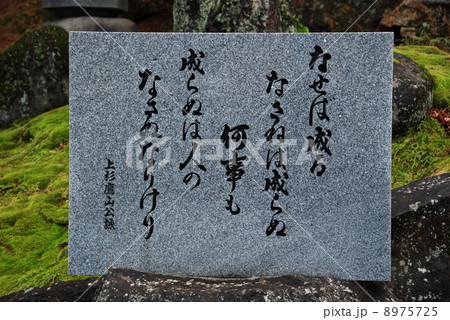 なせは成る
なさねは成らぬ
何事も
成らぬは人の
なさぬなりけり
上杉鷹山公
8975725